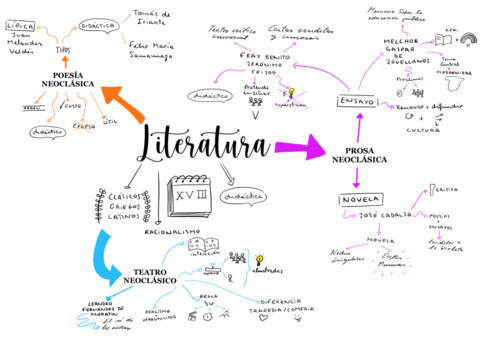 LÍRICA
Juan
Meléndez
Valdés
TIPOS
DIDÁCTICA
Tomás de
Iriarte
Félix María
Samaniego
POESÍA
NEOCLÁSICA
didáctica
GUSTO
ÚTIL
Literatura
XVIII
CLÁSICOS
GRIEGOS
LATINOS
RACIONALISMO
didáctica
TEATRO
NEOCLÁSICO
intención
LEANDRO
FERNÁNDEZ DE
MORATÍN
El sí de
las niñas
REALISMO
VEROSIMILITUD
REGLA
DIFERENCIA
TRAGEDIA/COMEDIA
Teatro crítico
universal
Cartas eruditas
y curiosas
FRAY BENITO
JERÓNIMO
FEIJOO
didáctico
Pretende
enseñar
PROSA
NEOCLÁSICA
ENSAYO
Memoria sobre la
educación pública
MELCHOR
GASPAR
DE
JOVELLANOS
Tema
central
MODERNIZAR
Problemas
Renovar + difundir
CULTURA
NOVELA
JOSÉ CADALSO
CRÍTICO
POESÍAS
+
ENSAYOS
Eruditos a
la violeta
NOVELA
Noches
lúgubres
Cartas
Marruecas